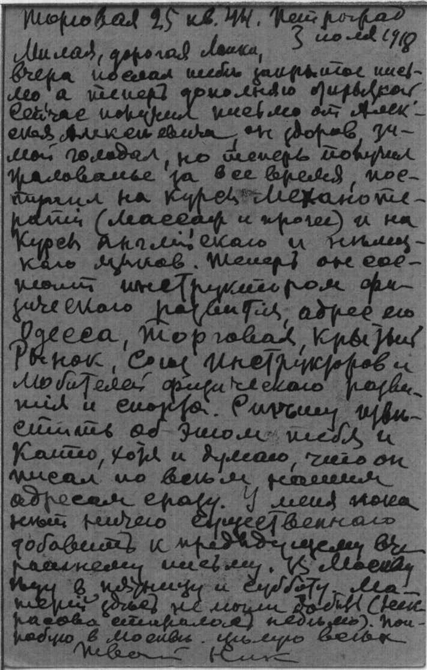 Торговая 25 кв. 44. Петроград
3 июля 1918
Милая, дорогая
вчера послал тебе закрытое пись-
мо а теперь дополняю открыткой
Сейчас получил письмо от Алек-
сея Алексеевича, он здоров, зи-
мой голодал, но теперь получил
жалованье за все время, пос-
тупил на курсы Механоте-
рапии (массаж и прочее) и на
курсы английскаго и немец-
каго языков. Теперь он сос-
тоит инструктором фи-
зическаго развития, адрес его
Одесса, Торговая, Крытый
Рынок, Союз Инструкторов и
Любителей физическаго разви-
тия и спорта. Спешу изве-
стить об этом тебя и
Катю, хотя и думаю, что он
писал по всем нашим
адресам сразу. У меня пока
нет ничего существеннаго
добавить к предыдущему вче-
рашнему письму. В Москву
еду в пятницу и субботу. Ма-
терии здесь не могли добыть
в Москве. целую всех
Твой Ник